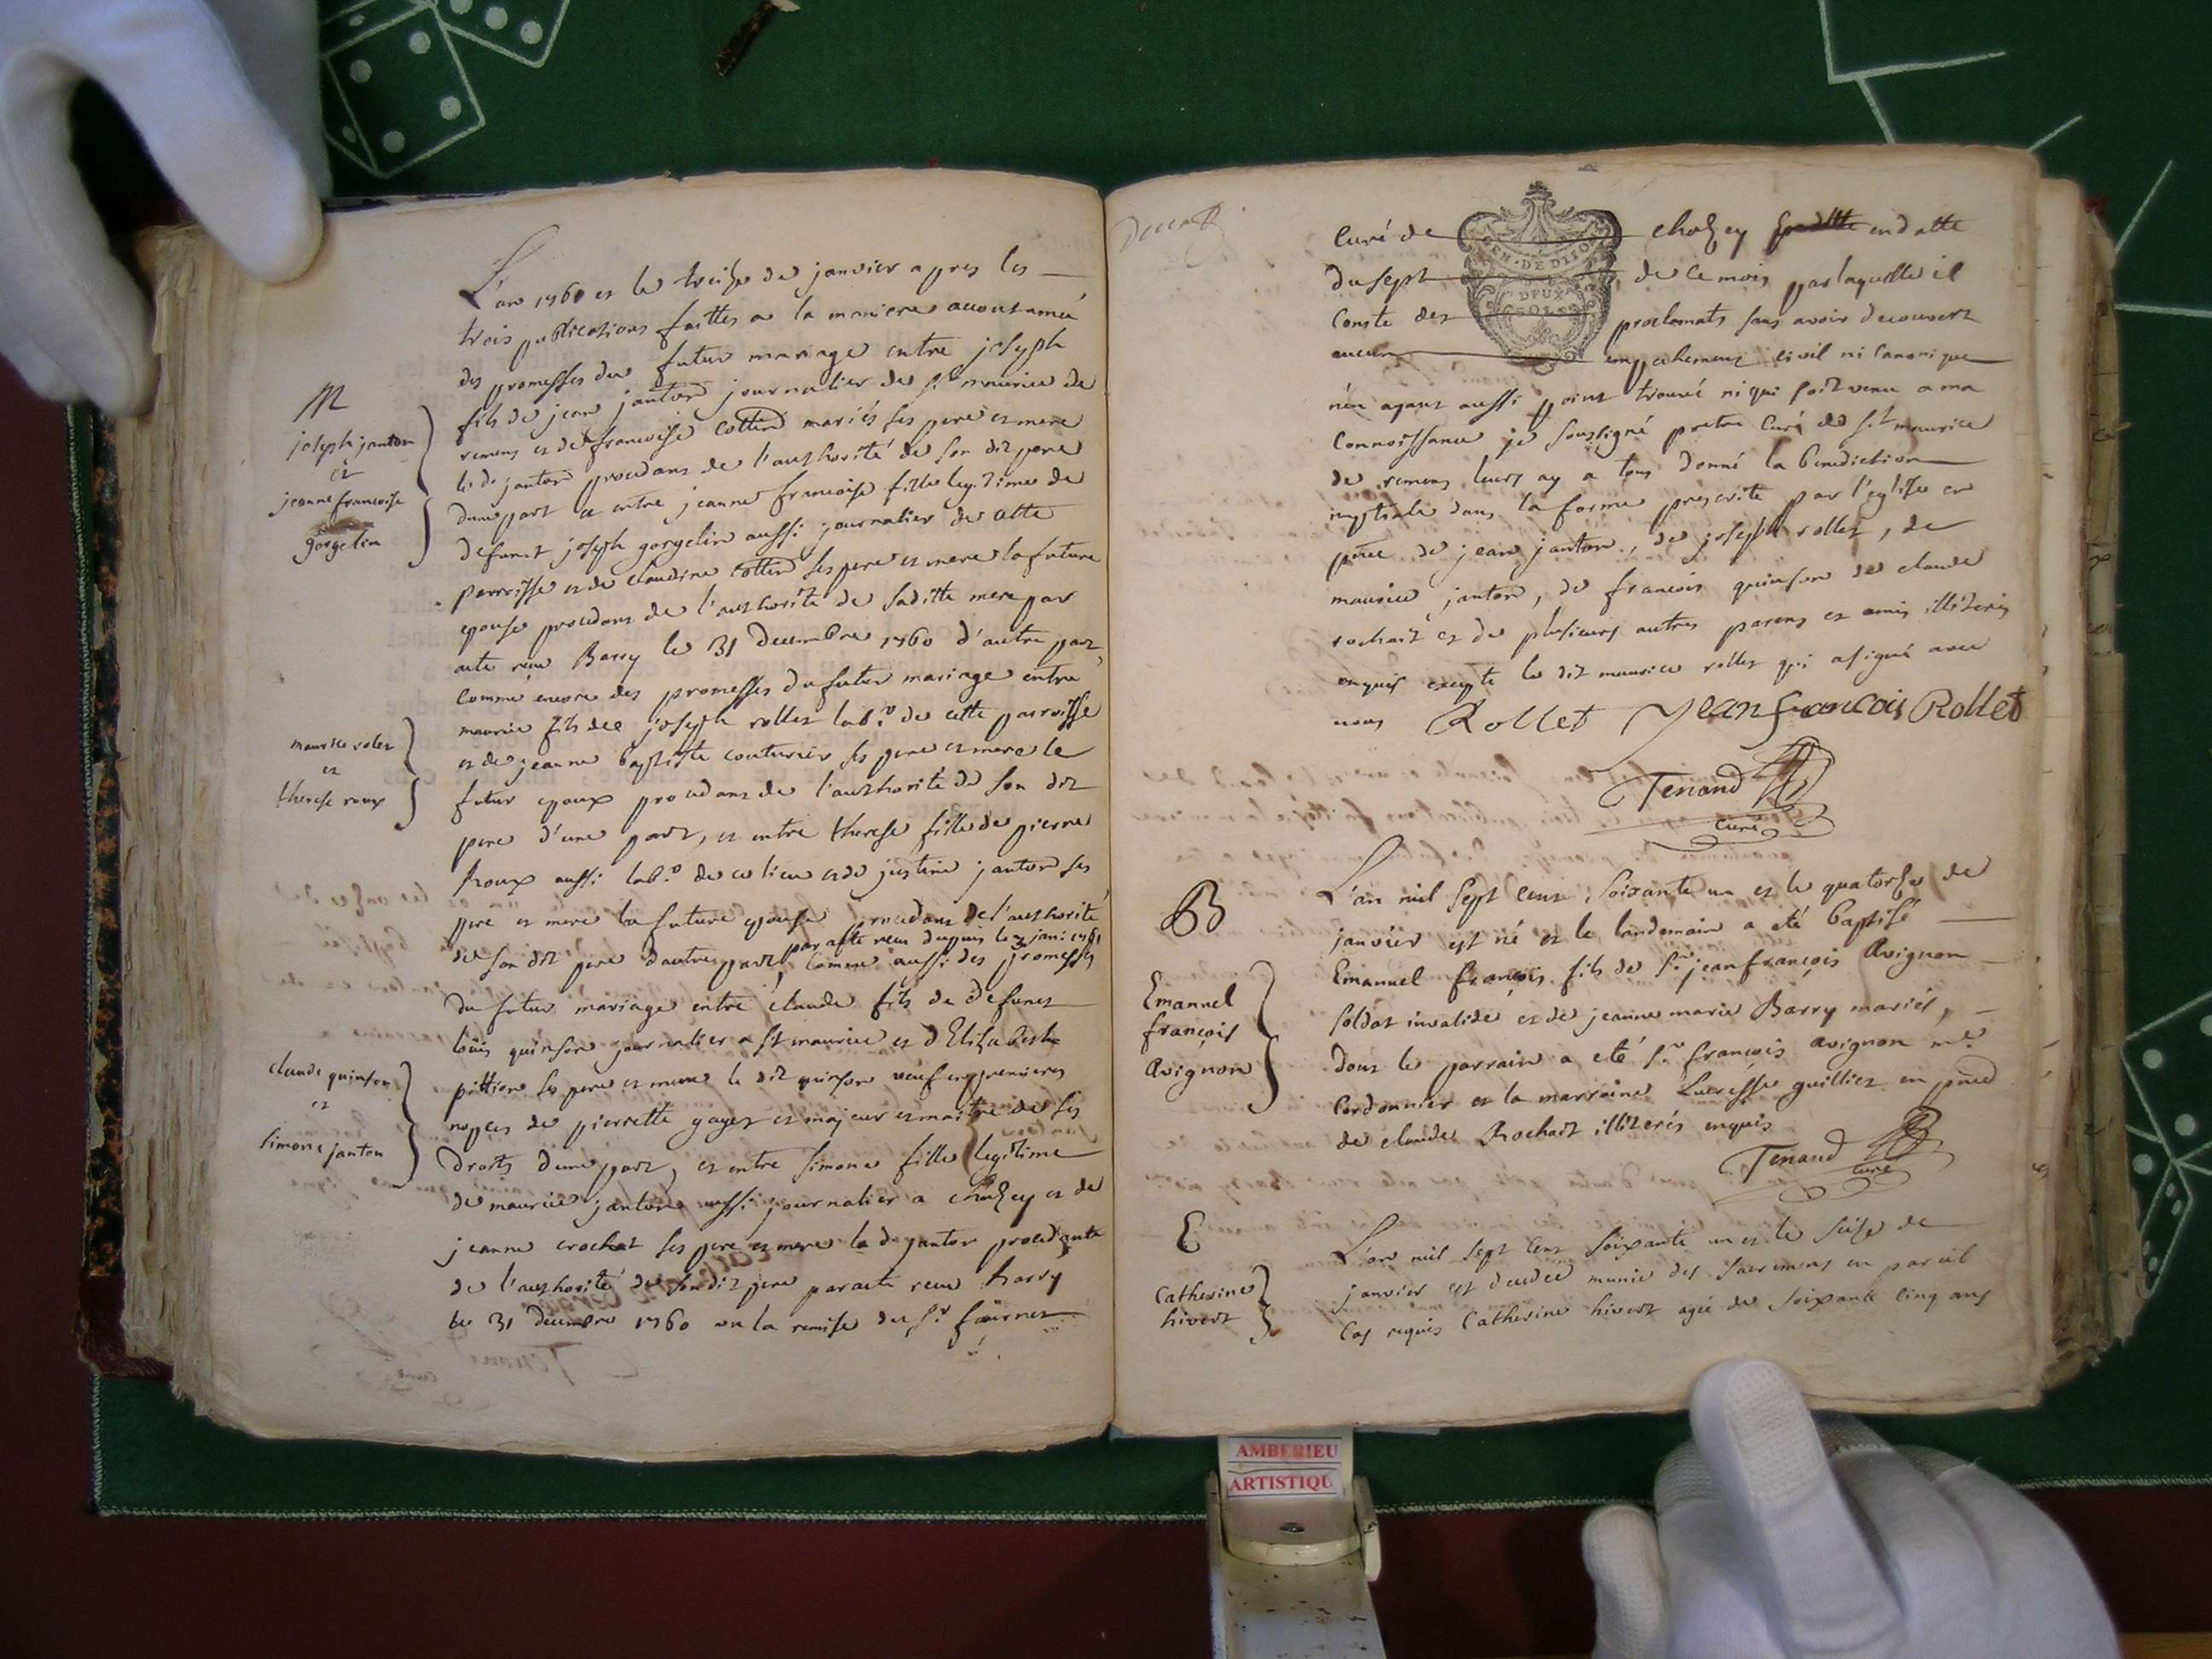 L'an 1760 et le treize de janvier apres les
trois publications faittes a la maniere accoutumée
des promesses du futur mariage entre joseph
fils de jean janton journalier de St maurice de
remens et de francoise cottin mariés ses pere et mere
le d. janton procedant de l'authorité de son dit pere
d'une part et entre jeanne francoise fille legitime de
defunct joseph gorgelin aussi journalier de cette
parroisse et de claudine cottin ses pere et mere la future
epouse procedant de l'authorité de sa ditte mere par
acte reçu Barry le 31 decembre 1760 d'autre part,
comme encore des promesses du futur mariage entre
maurice fils de joseph rollet lab.r de cette parroisse
et de jeanne baptiste couturier ses pere et mere le
futur epoux procedant de l'authorité de son dit
pere d'une part, et entre therese fille de pierre
Roux aussi lab.r de ce lieu et de justine janton ses
pere et mere la future epouse procedant de l'authorité
par acte reçu dupuis le 3 janv. 1761
de son dit pere d'autre part, comme aussi des promesses
du futur mariage entre claude fils de defunct
loüis quinson journalier a St maurice et d'Elizabeth
pittion ses pere et mere le dit quinson veuf en premieres
nopces de pierrette gayet et majeur et maitre de ses
droits d'une part, et entre simone fille legitime
de maurice janton aussi journalier a chazey et de
jeanne crochat ses pere et mere la d. janton procedante
de l'authorité de son dit pere par acte reçu barry
le 31 decembre 1760 vu la remise du Sr. fournet
M
joseph janton
et
jeanne francoise
gorgelin
maurice rolet
et
therese roux
claude quinson
et
simone janton
curé de chazey en datte
du sept de ce mois par laquelle il
conste des proclamats sans avoir decouvert
aucun empechement civil ni canonique
n'en ayant aussi point trouvé ni qui soit venu a ma
connoissance je soussigné pretre curé de St maurice
de remens leurs ay a tous donné la benediction
nuptiale dans la forme prescrite par l'eglise en
pñce de jean janton, de joseph rollet, de
maurice janton, de francois quinson de claude
rochait et de plusieurs autres parens et amis illiterés
enquis excepte le dit maurice rollet qui a signé avec
nous Rollet Jean francois Rollet
Tenand
curé
B
Emanuel
françois
Avignon
L'an mil sept cent soixante un et le quatorze de
janvier est né et le landemain a eté baptisé
Emanuel françois fils de Sr. jean françois Avignon
soldat invalide et de jeanne marie Barry mariés,
dont le parrain a eté Sr. françois avignon me.
cordonnier et la marraine Lucresse guilliet en pñce
de claude Rochait illiterés enquis
Tenand
curé
E
Catherine
hivert
L'an mil sept cent soixante un et le seize de
janvier est decedée munie des sacremens en pareil
cas requis Catherine hivert agée de soixante cinq ans
GEN. DE DIJON
DEUX
SOLS
AMBERIEU
ARTISTIQU